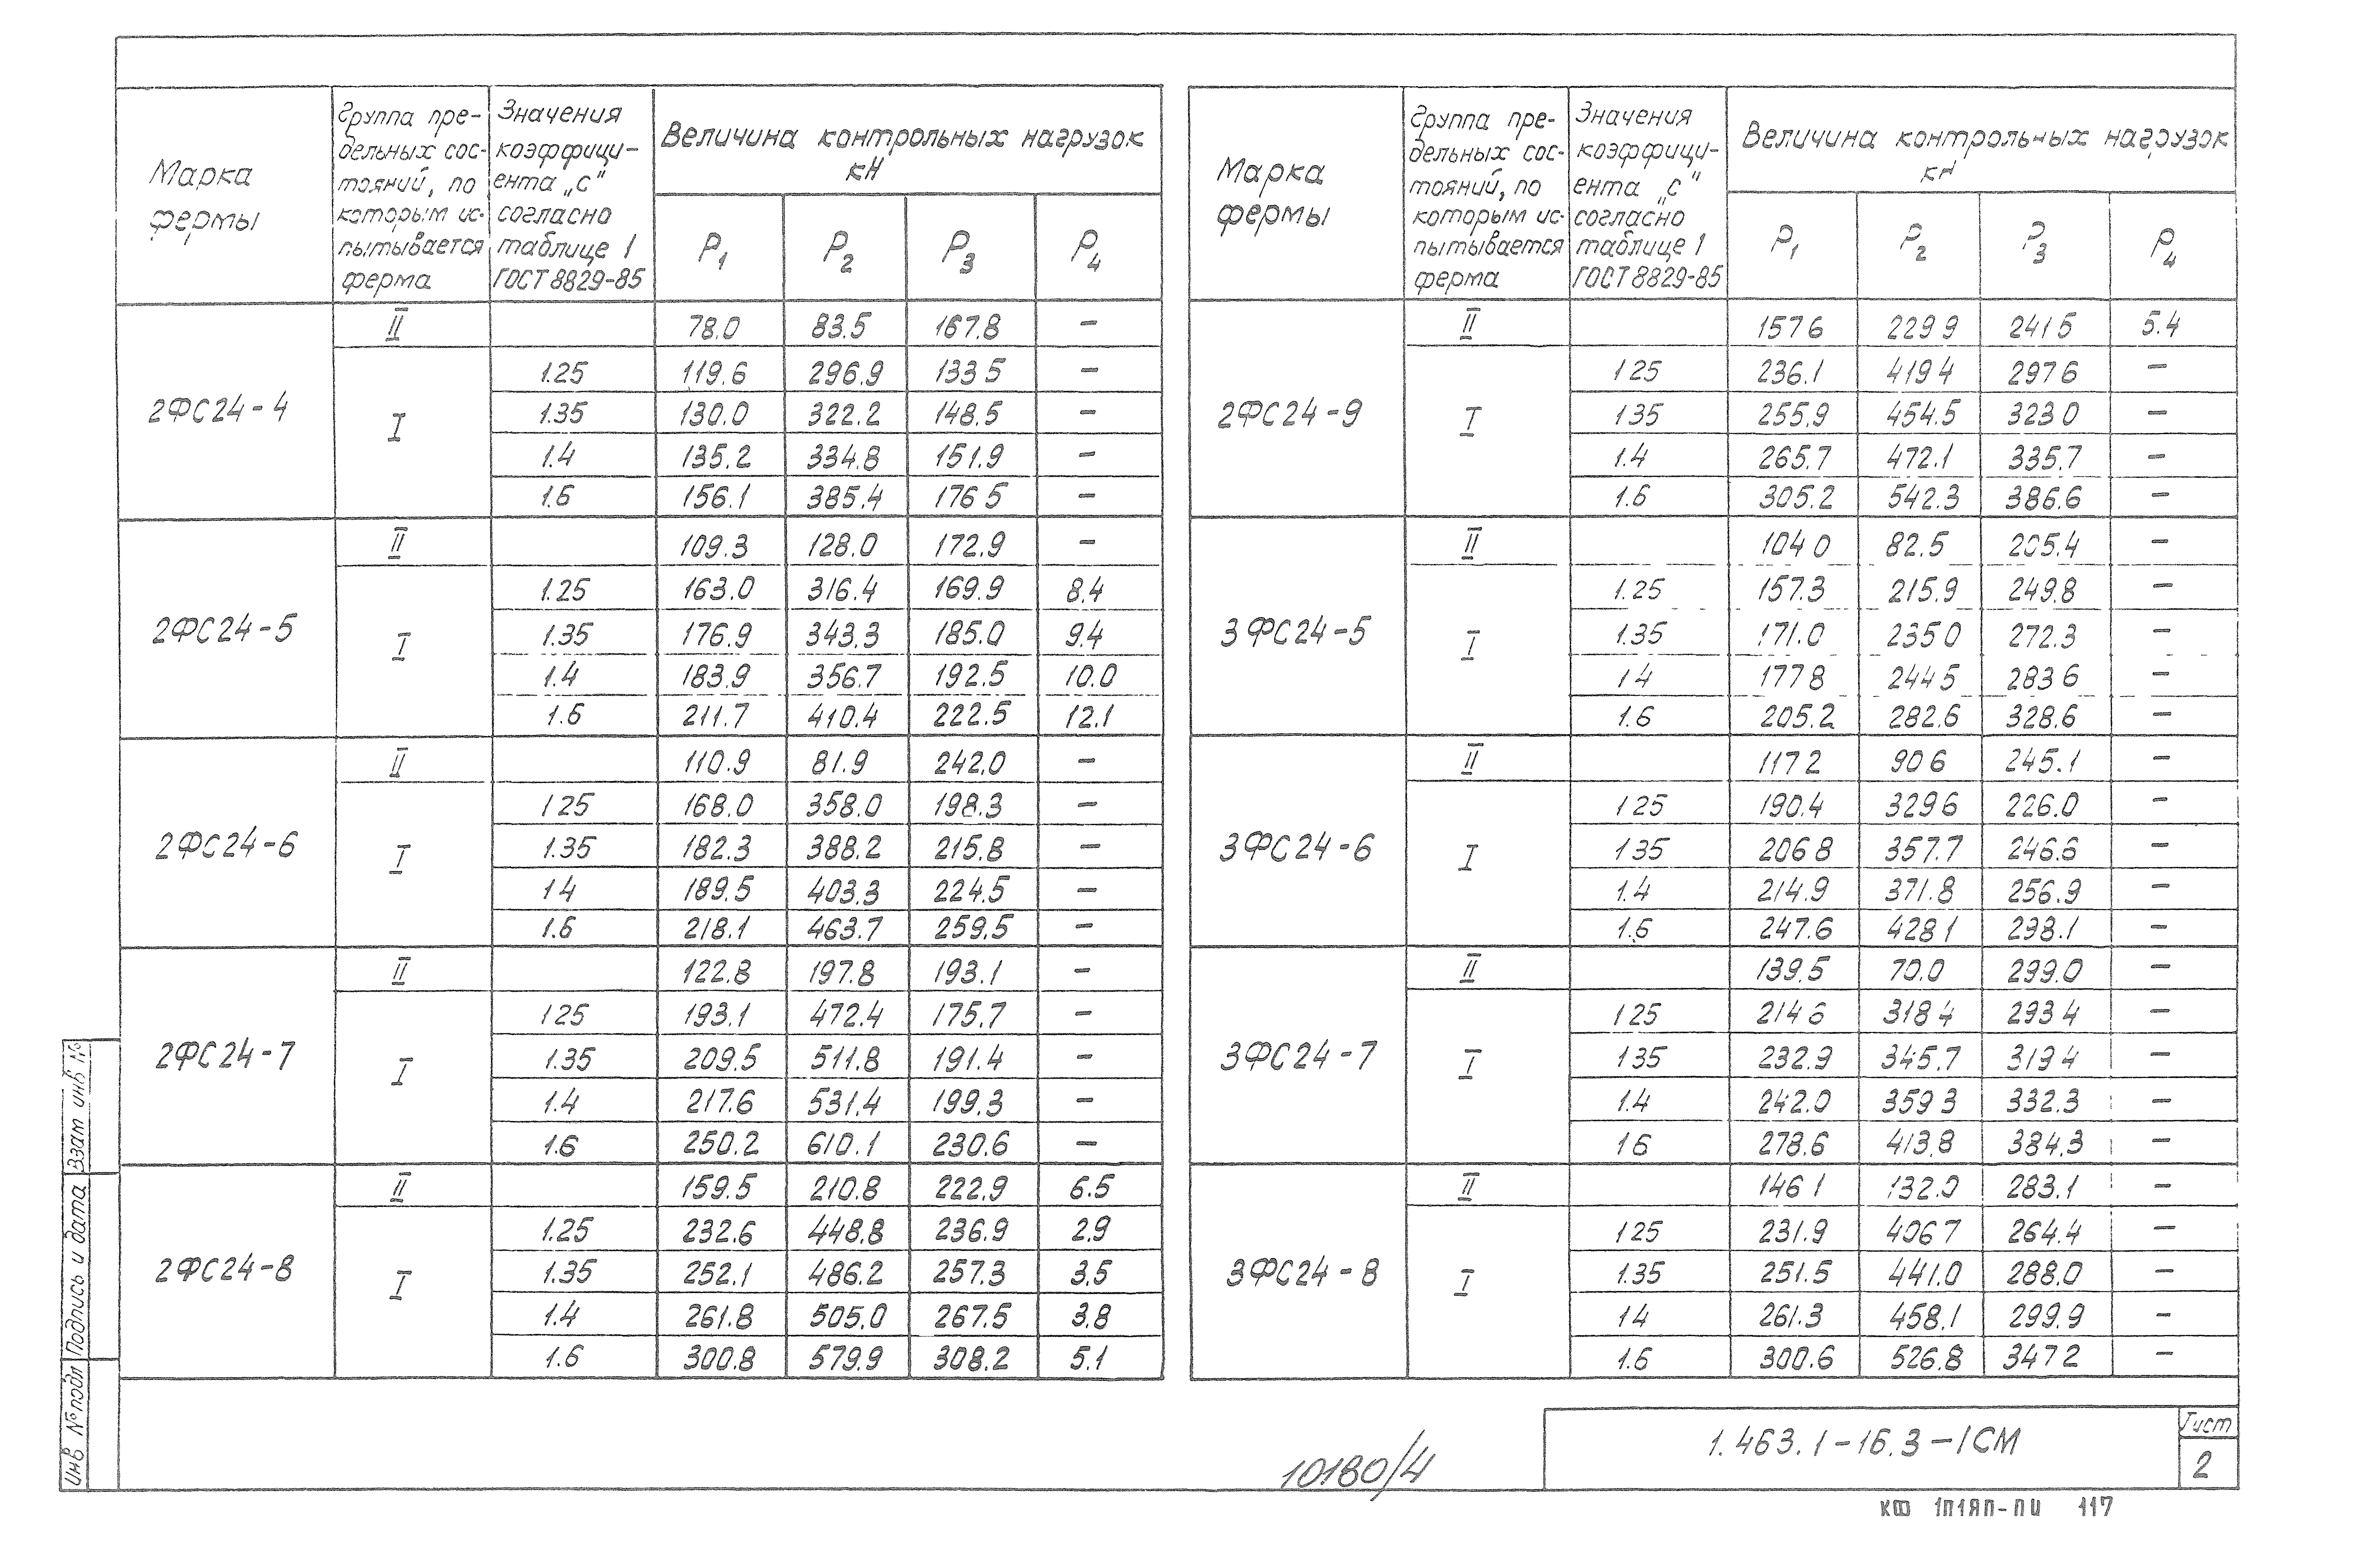 Марка фермы
Группа предельных состояний, по которым испытывается ферма
Значения коэффициента „с" согласно таблице 1 ГОСТ 8829-85
Величина контрольных нагрузок кН
P1 P2 P3 P4
2ФС24-4
II 78.0 83.5 167.8 –
I 1.25 119.6 296.9 133 5 –
1.35 130.0 322.2 148.5 –
1.4 135.2 334.8 151.9 –
1.6 156.1 385.4 176 5 –
2ФС24-5
II 109.3 128.0 172.9 –
I 1.25 163.0 316.4 169.9 8.4
1.35 176.9 343.3 185.0 9.4
1.4 183.9 356.7 192.5 10.0
1.6 211.7 410.4 222.5 12.1
2ФС24-6
II 110.9 81.9 242.0 –
I 1 25 168.0 358.0 198.3 –
1.35 182.3 388.2 215.8 –
1 4 189.5 403.3 224.5 –
1.6 218.1 463.7 259.5 –
2ФС24-7
II 122.8 197.8 193.1 –
I 1 25 193.1 472.4 175.7 –
1.35 209.5 511.8 191.4 –
1.4 217.6 531.4 199.3 –
1.6 250.2 610.1 230.6 –
2ФС24-8
II 159.5 210.8 222.9 6.5
I 1.25 232.6 448.8 236.9 2.9
1.35 252.1 486.2 257.3 3.5
1.4 261.8 505.0 267.5 3.8
1.6 300.8 579.9 308.2 5.1
Марка фермы
Группа предельных состояний, по которым испытывается ферма
Значения коэффициента „с" согласно таблице 1 ГОСТ 8829-85
Величина контрольных нагрузок кН
P1 P2 P3 P4
2ФС24-9
II 157 6 229 9 241 5 5.4
I 1 25 236.1 419 4 297 6 –
1 35 255.9 454.5 323 0 –
1.4 265.7 472.1 335.7 –
1.6 305.2 542.3 386.6 –
3ФС24-5
II 104 0 82.5 205.4 –
I 1.25 157.3 215.9 249.8 –
1.35 171.0 235 0 272.3 –
1 4 177 8 244 5 283 6 –
1.6 205.2 282.6 328.6 –
3ФС24-6
II 117 2 90 6 245.1 –
I 1 25 190.4 329 6 226.0 –
1 35 206 8 357.7 246.6 –
1.4 214.9 371.8 256.9 –
1.6 247.6 428 1 298.1 –
3ФС24-7
II 139.5 70.0 299.0 –
I 1 25 214 6 318 4 293 4 –
1 35 232.9 345.7 319 4 –
1.4 242.0 359 3 332.3 –
1 6 278.6 413.8 384.3 –
3ФС24-8
II 146 1 132.0 283.1 –
I 1 25 231.9 406 7 264.4 –
1.35 251.5 441.0 288.0 –
1 4 261.3 458.1 299.9 –
1.6 300.6 526.8 347 2 –
Инв № подл
Подпись и дата
Взам инв №
10180/4
1.463.1-16.3-1СМ
Лист
2
117